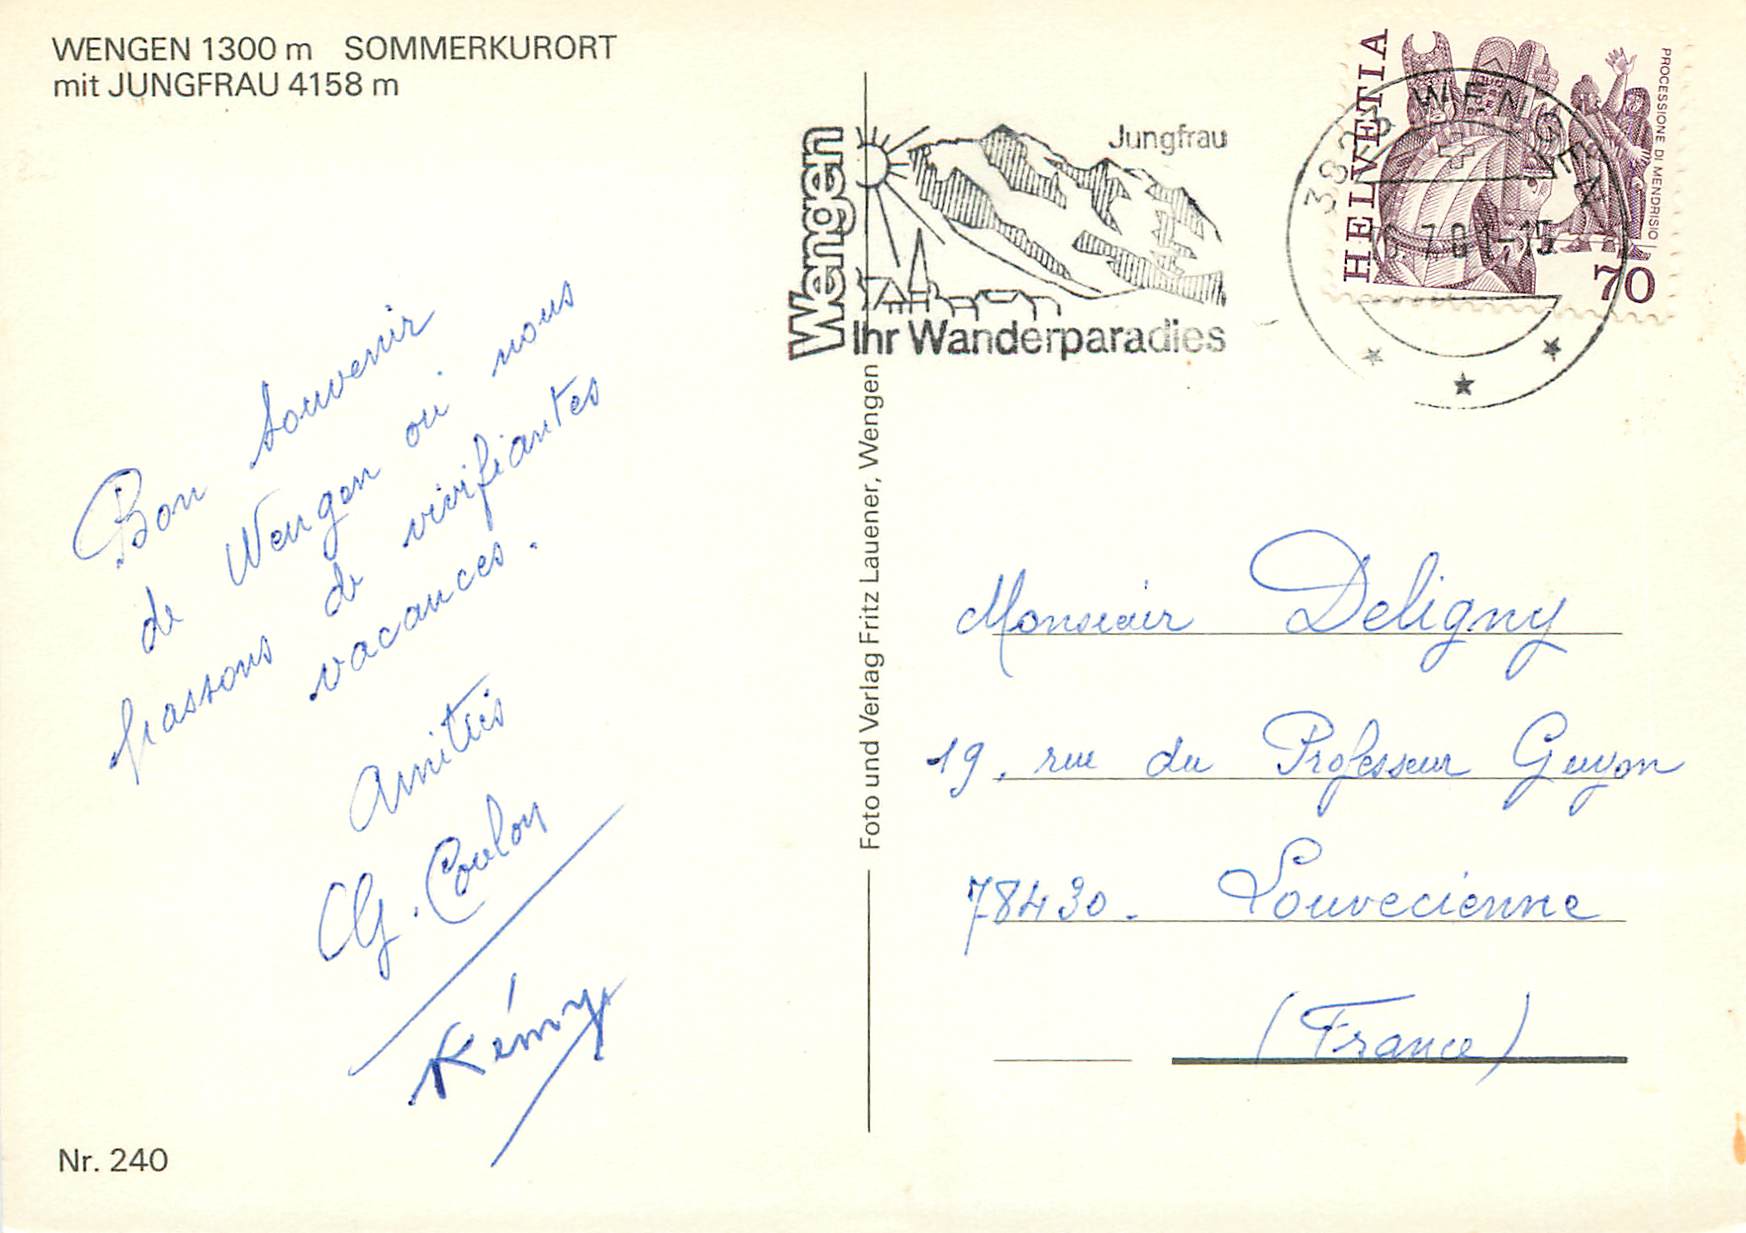 WENGEN 1300 m SOMMERKURORT
mit JUNGFRAU 4158 m
Bon souvenir
de Wengen où nous
passons de vivifiantes
vacances.
Amitiés
G. Coulon
Rémy
Nr. 240
Foto und Verlag Fritz Lauener, Wengen
Wengen
Jungfrau
Ihr Wanderparadies
HELVETIA
PROCESSIONE DI MENDRISIO
70
WENGEN
Monsieur Deligny
19, rue du Professeur Guyon
78430. Louvecienne
(France)